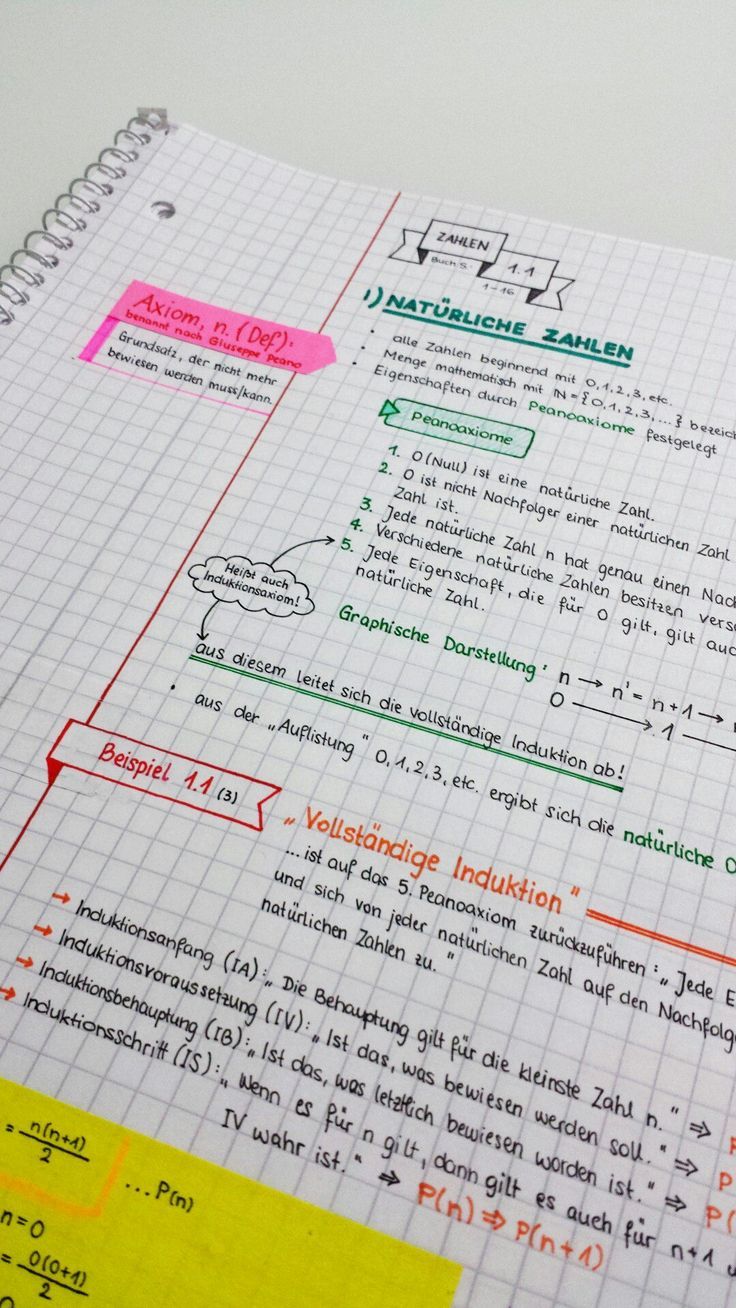 ZAHLEN
Buch S.
1.1
1-16
1) NATÜRLICHE ZAHLEN
Axiom, n. (Def):
benannt nach Giuseppe Peano
Grundsatz, der nicht mehr
bewiesen werden muss/kann.
• alle Zahlen beginnend mit 0,1,2,3, etc.
• Menge mathematisch mit ℕ = {0,1,2,3,...}
• Eigenschaften durch Peanoaxiome festgelegt
Peanoaxiome
1. 0 (Null) ist eine natürliche Zahl.
2. 0 ist nicht Nachfolger einer natürlichen Zahl
Zahl ist.
3. Jede natürliche Zahl n hat genau einen
4. Verschiedene natürliche Zahlen besitzen
5. Jede Eigenschaft, die für 0 gilt, gilt
natürliche Zahl.
Heißt auch
Induktionsaxiom!
Graphische Darstellung: n → n' = n+1 →
0 → 1
aus diesem leitet sich die vollständige Induktion ab!
• aus der „Auflistung" 0,1,2,3, etc. ergibt sich die natürliche
Beispiel 1.1 (3)
„Vollständige Induktion"
...ist auf das 5. Peanoaxiom zurückzuführen: „Jede
und sich von jeder natürlichen Zahl auf den
natürlichen Zahlen zu."
→ Induktionsanfang (IA): „Die Behauptung gilt für die kleinste Zahl n." ⇒
→ Induktionsvoraussetzung (IV): „Ist das, was bewiesen werden soll." ⇒ P
→ Induktionsbehauptung (IB): „Ist das, was letztlich bewiesen worden ist." ⇒ P(
→ Induktionsschritt (IS): „Wenn es für n gilt, dann gilt es auch für n+1
IV wahr ist." ⇒ P(n) ⇒ P(n+1)
= n(n+1)/2 ...P(n)
n=0
= 0(0+1)/2